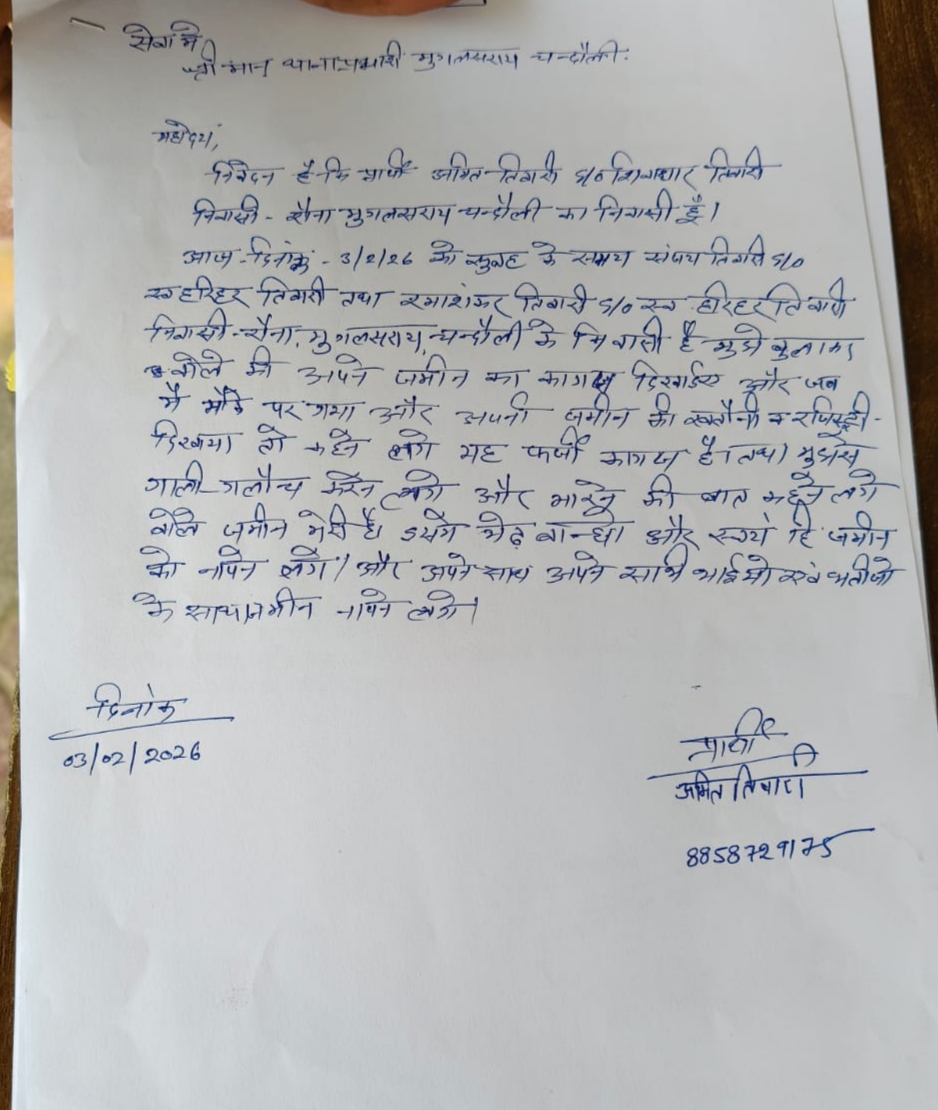 सेवा में
श्री मान थाना प्रभारी मुगलसराय चन्दौली.
महोदय,
निवेदन है कि प्रार्थी अमित तिवारी S/O शिवाधार तिवारी
निवासी - रौना मुगलसराय चन्दौली का निवासी हूँ।
आज दिनांक - 3/2/26 को सुबह के समय संजय तिवारी S/O
स्व हरिहर तिवारी तथा रमाशंकर तिवारी S/O स्व हरिहर तिवारी
निवासी - रौना, मुगलसराय, चन्दौली के निवासी है मुझे बुलाकर
बोले की अपने जमीन का कागज दिखाईए और जब
मै मौके पर गया और अपनी जमीन की खतौनी व रजिस्ट्री
दिखाया तो कहने लगे यह फर्जी कागज है। तथा मुझसे
गाली-गलौच करने लगे और मारने की बात कहने लगे
बोले जमीन मेरी है। इसमे मेढ़ बान्धो और स्वयं हि जमीन
को नापने लगे। और अपने साथ अपने साभी भाईयो एवं भतीजो
के साथ जमीन नापने लगे।
दिनांक
03/02/2026
प्रार्थी
अमित तिवारी
8858729175